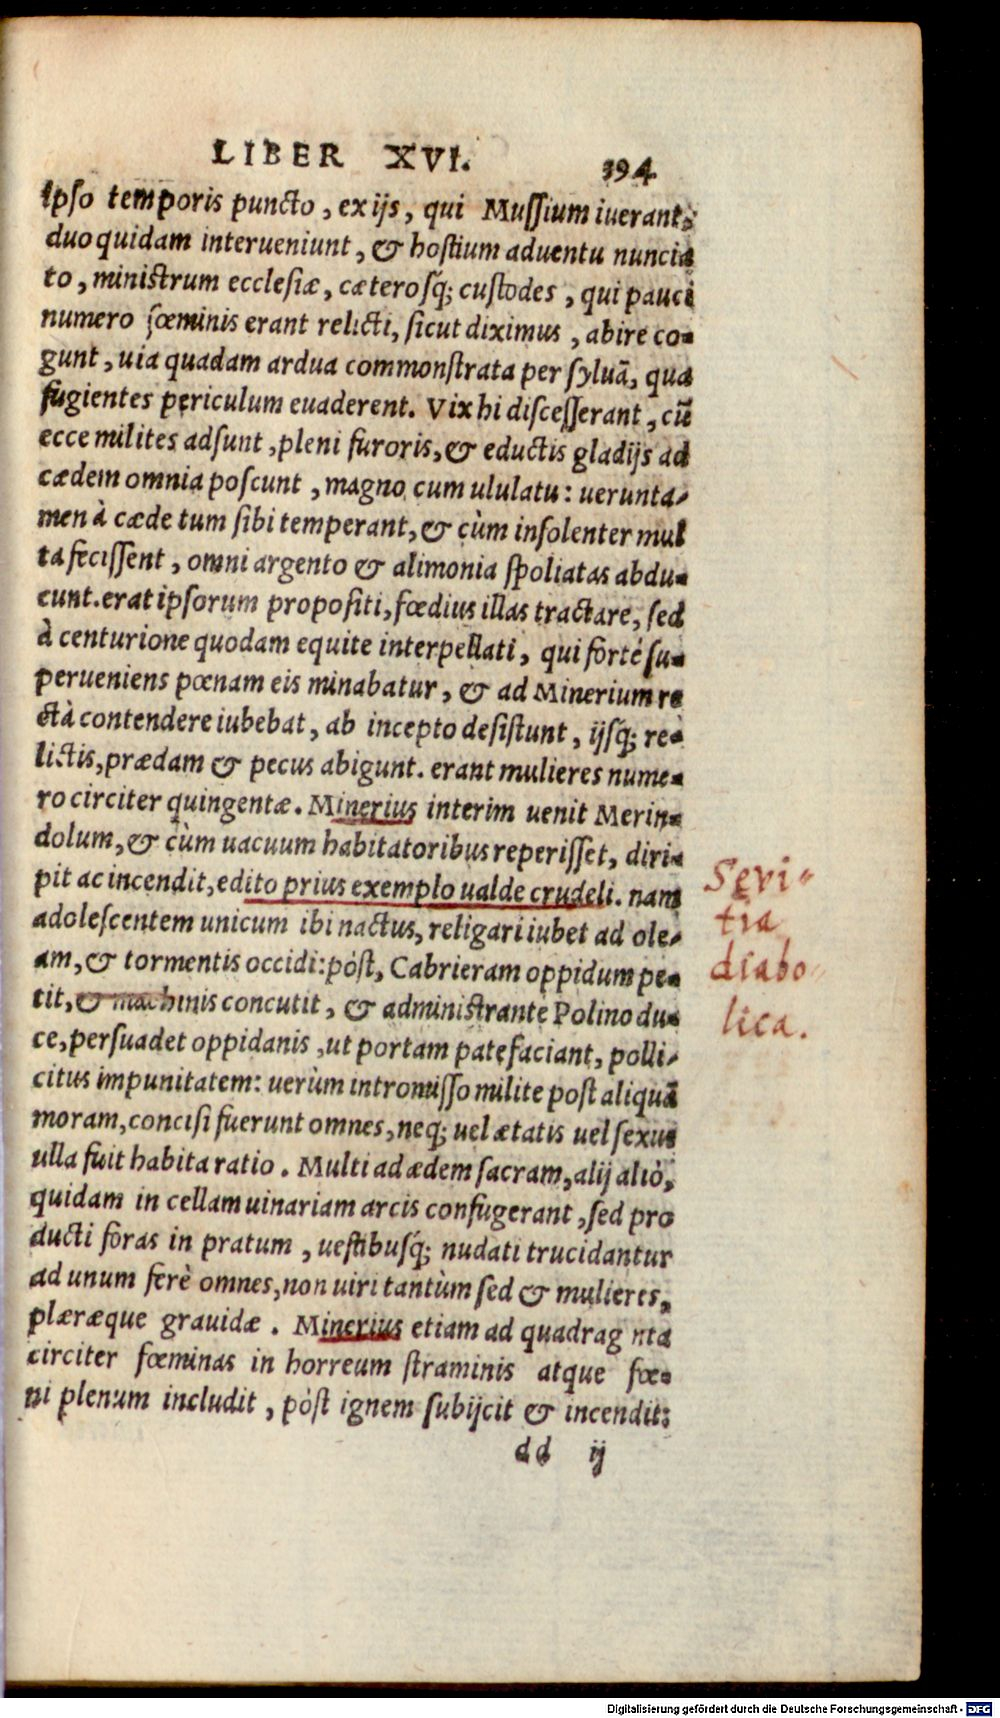 LIBER XVI. 394
Ipso temporis puncto, ex ijs, qui Mussium iuerant,
duo quidam interueniunt, & hostium aduentu nuncia
to, ministrum ecclesiæ, cæterosq́; custodes, qui pauci
numero fœminis erant relicti, sicut diximus, abire co-
gunt, uia quadam ardua commonstrata per syluã, qua
fugientes periculum euaderent. Vix hi discesserant, cũ
ecce milites adsunt, pleni furoris, & eductis gladijs ad
cædem omnia poscunt, magno cum ululatu: uerunta-
men à cæde tum sibi temperant, & cùm insolenter mul
ta fecissent, omni argento & alimonia spoliatas abdu-
cunt. erat ipsorum propositi, fœdius illas tractare, sed
à centurione quodam equite interpellati, qui fortè su-
perueniens pœnam eis minabatur, & ad Minerium re
ctà contendere iubebat, ab incepto desistunt, ijsq́; re-
lictis, prædam & pecus abigunt. erant mulieres nume-
ro circiter quingentæ. Minerius interim uenit Merin-
dolum, & cùm uacuum habitatoribus reperisset, diri-
pit ac incendit, edito prius exemplo ualde crudeli. nam
adolescentem unicum ibi nactus, religari iubet ad ole-
am, & tormentis occidi: pòst, Cabrieram oppidum pe-
tit, & machinis concutit, & administrante Polino du-
ce, persuadet oppidanis, ut portam patefaciant, polli-
citus impunitatem: uerùm intromisso milite post aliquã
moram, concisi fuerunt omnes, neq; uel ætatis uel sexus
ulla fuit habita ratio. Multi ad ædem sacram, alij aliò,
quidam in cellam uinariam arcis confugerant, sed pro
ducti foras in pratum, uestibusq́; nudati trucidantur
ad unum ferè omnes, non uiri tantùm sed & mulieres,
plæræque grauidæ. Minerius etiam ad quadrag nta
circiter fœminas in horreum straminis atque fœ-
ni plenum includit, pòst ignem subijcit & incendit:
dd ij
Sęvi-
tia
diabo-
lica.
Digitalisierung gefördert durch die Deutsche Forschungsgemeinschaft - DFG